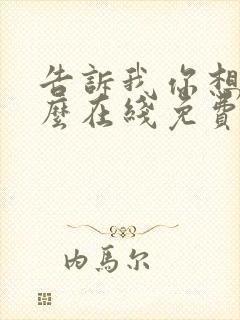 告訴我 你想
麼在綫免費
内馬尔